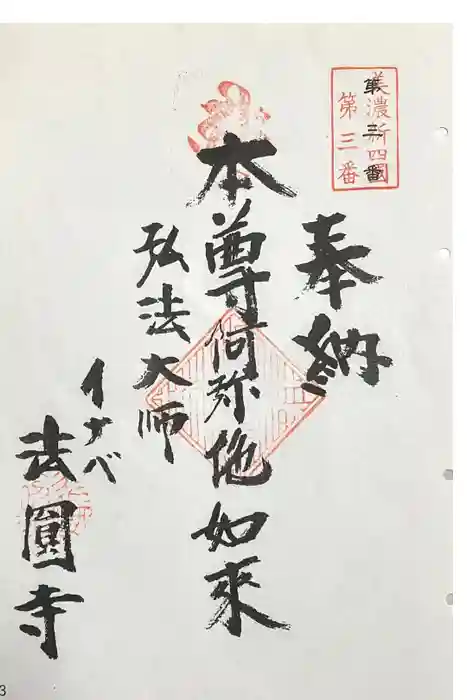 美濃新四国
第三番
奉納
本尊阿弥他如來
弘法大师
イナベ
法圓寺
3